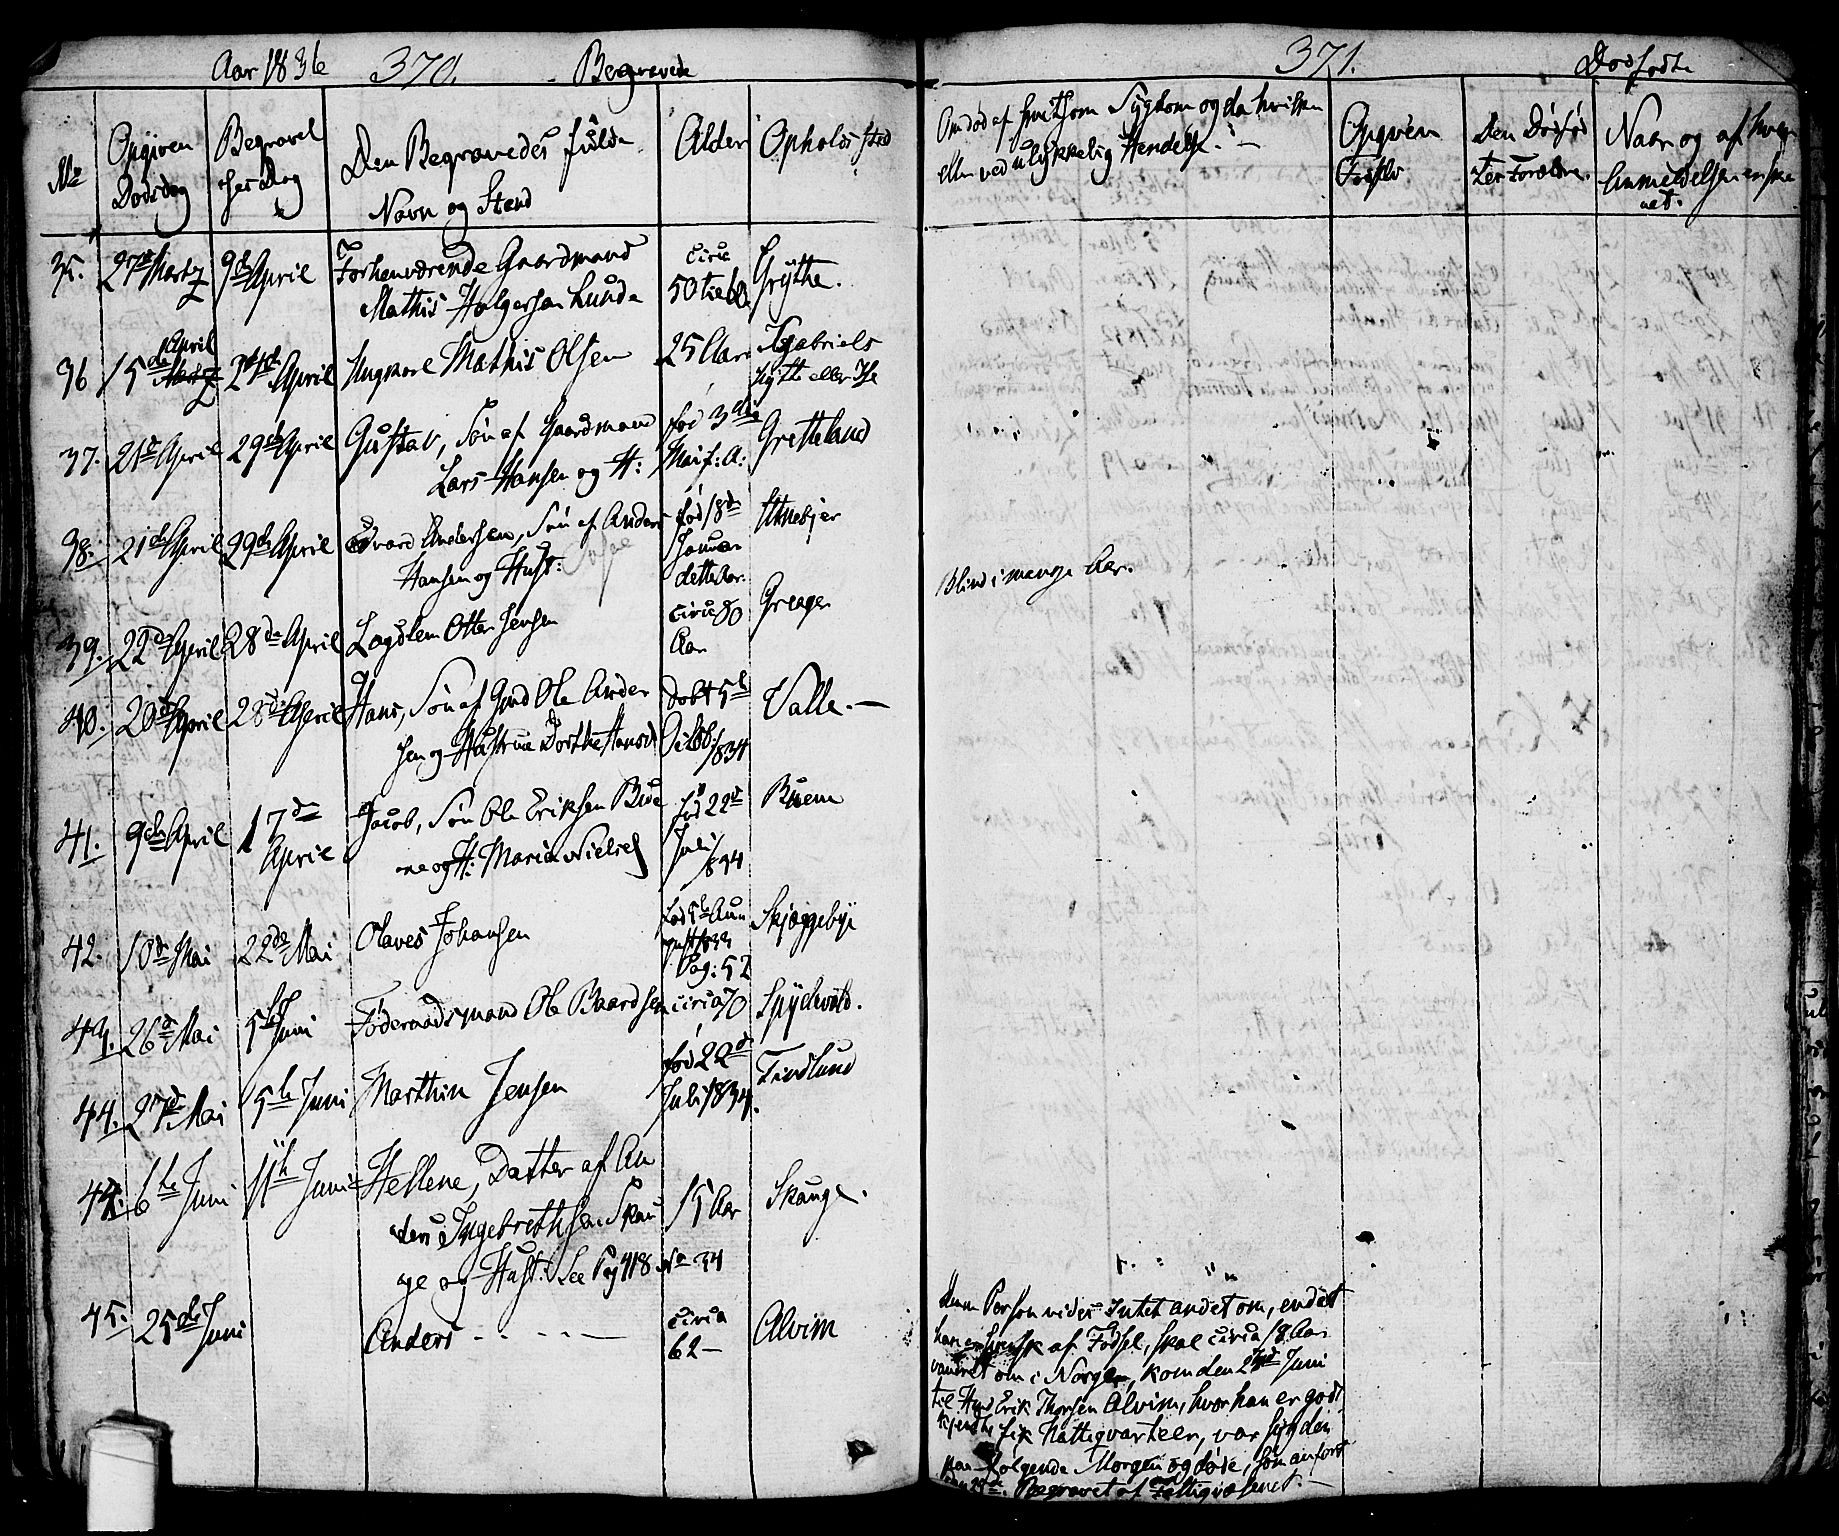 Aar 1836 370. Begravede
No
Opgiven
Dødsdag
Begravel
ses Dag
Den Begravedes fulde
Navn og Stand
Alder
Opholds sted
35. 27de Martz 9de April Forhenværende Gaardmand circa Grythe.
Mathis Holgersen Lunde 50
36 15de April 24de April Ungkarl Mathis Olsen 25 Aar
Hytte eller
37. 21de April 29de April Gustav, Søn af Gaardmand fød 3die Gretteland
Lars Hansen og H: Mai f: A:
38. 21de April 29de April Andersen, Søn af Anders fød 18de
Hansen og Hust: Januar
dette Aar.
39. 22de April 28de April Lægdslem Otter Jensen circa 80 Greager
Aar
40. 20de April 28de April Hans, Søn af Gmd Ole Ander Døbt 5te Valle. —
sen og Hustrue Dorthe Hansd. Octbr 1834
41. 9de April 17de April Jacob, Søn Ole Eriksen Bue fød 22de Buem
ne og H: Maria Nielsd Juli 1834
42. 10de Mai 22de Mai Olaves Johansen fød 5te Au Skjøggebye
gust
Pag: 52
43. 26de Mai 5te Juni Føderaadsmand Ole Baardsen circa 70 Spydevold.
44. 27de Mai 5te Juni Marthin Jensen fød 22de Findlund
Juli 1834.
44. 6te Juni 11te Juni Hellene, Datter af An 15 Aar Skauge.
ders Ingebrethsen Skau
ge og Hust: See Pag 418 No 34
45. 25de Juni Anders - - - - — circa Alvim
62 —
371. Dødfødte
Om død af hvilksom Sygdom og da hvilken
eller ved ulykkelig Hendelse. —
Opgiven
Fødsels
Den Dødfød
tes Forældre.
Navn og af hvem
Anmeldelsen er skee
et.
Blind i mange Aar.
Denne Person vides Intet andet om, endat
han er svensk af Fødsel, skal circa 18 Aar
vandret om i Norge, kom den 24de Juni
til Gmd Erik Thorsen Alvim, hvor han er godt
kjendt fik Natteqvarteer, var syg den
paafølgende Morgen og døde, som anført
den 25de. Begravet af Fattigvæsenet. —